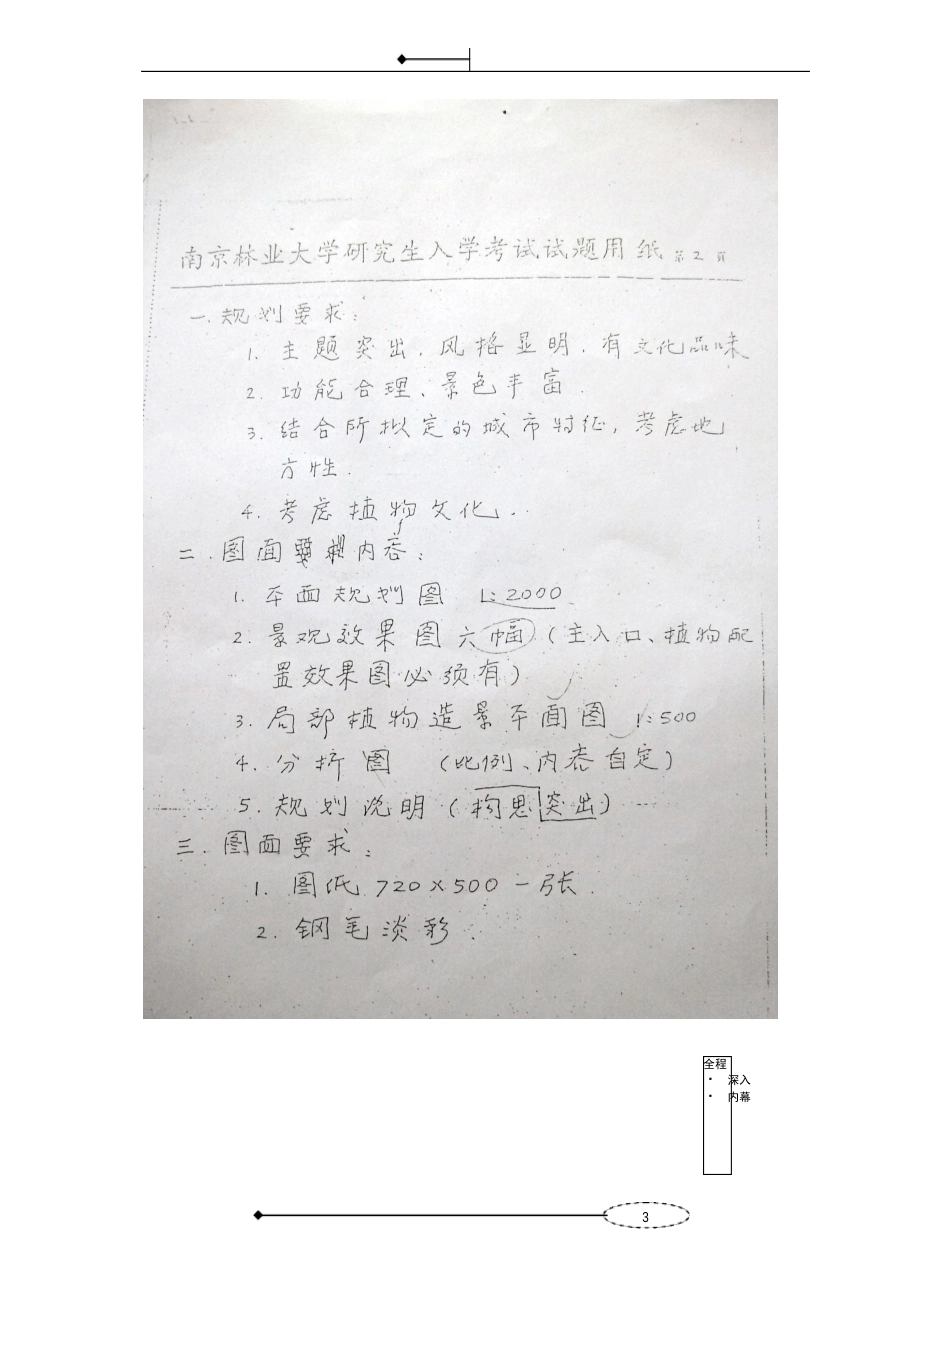 南京林业大学研究生入学考试试题用纸 第2页
一.规划要求:
1. 主题突出.风格显明.有文化品味
2. 功能合理、景色丰富.
3. 结合所拟定的城市特征,考虑地
方性.
4. 考虑植物文化.
二.图面内容:
1. 平面规划图 1:2000
2. 景观效果图六幅(主入口、植物配
置效果图必须有)
3. 局部植物造景平面图 1:500
4. 分析图 (比例、内容自定)
5. 规划说明(构思突出)
三.图面要求:
1. 图纸 720×500 一张.
2. 钢笔淡彩.
全程
• 深入
• 内幕
3